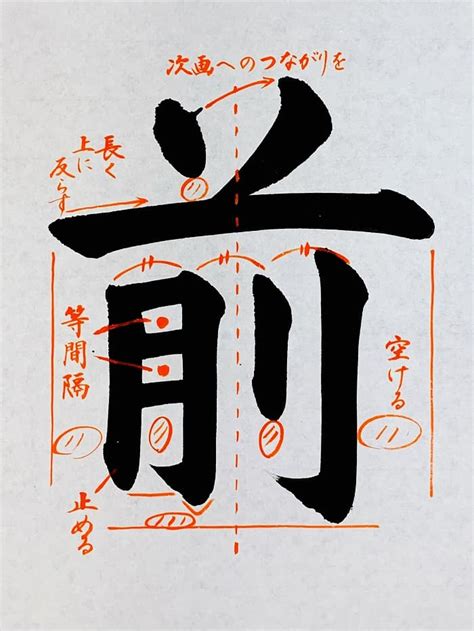 次画へのつながりを
長く
上に
反らす
前
等間隔
空ける
止める